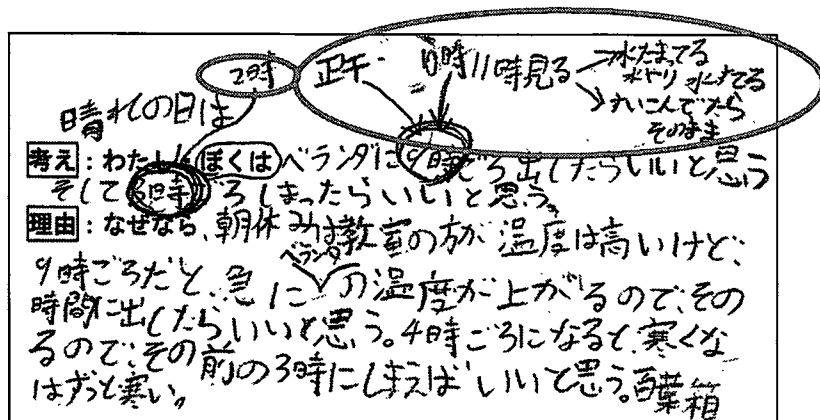 2時 正午 10時11時見る →水たまってる
水やり 水すてる
→すいこんでいたら
そのまま
晴れの日は
考え：わたし ぼくは ベランダに9時ごろ出したらいいと思う
そして3時ごろしまったらいいと思う。
理由：なぜなら、朝休みは教室の方が温度は高いけど、
9時ごろだと、急にベランダの温度が上がるので、その
時間に出したらいいと思う。4時ごろになると、寒くな
るので、その前の3時にしまえばいいと思う。百葉箱
はずっと寒い。